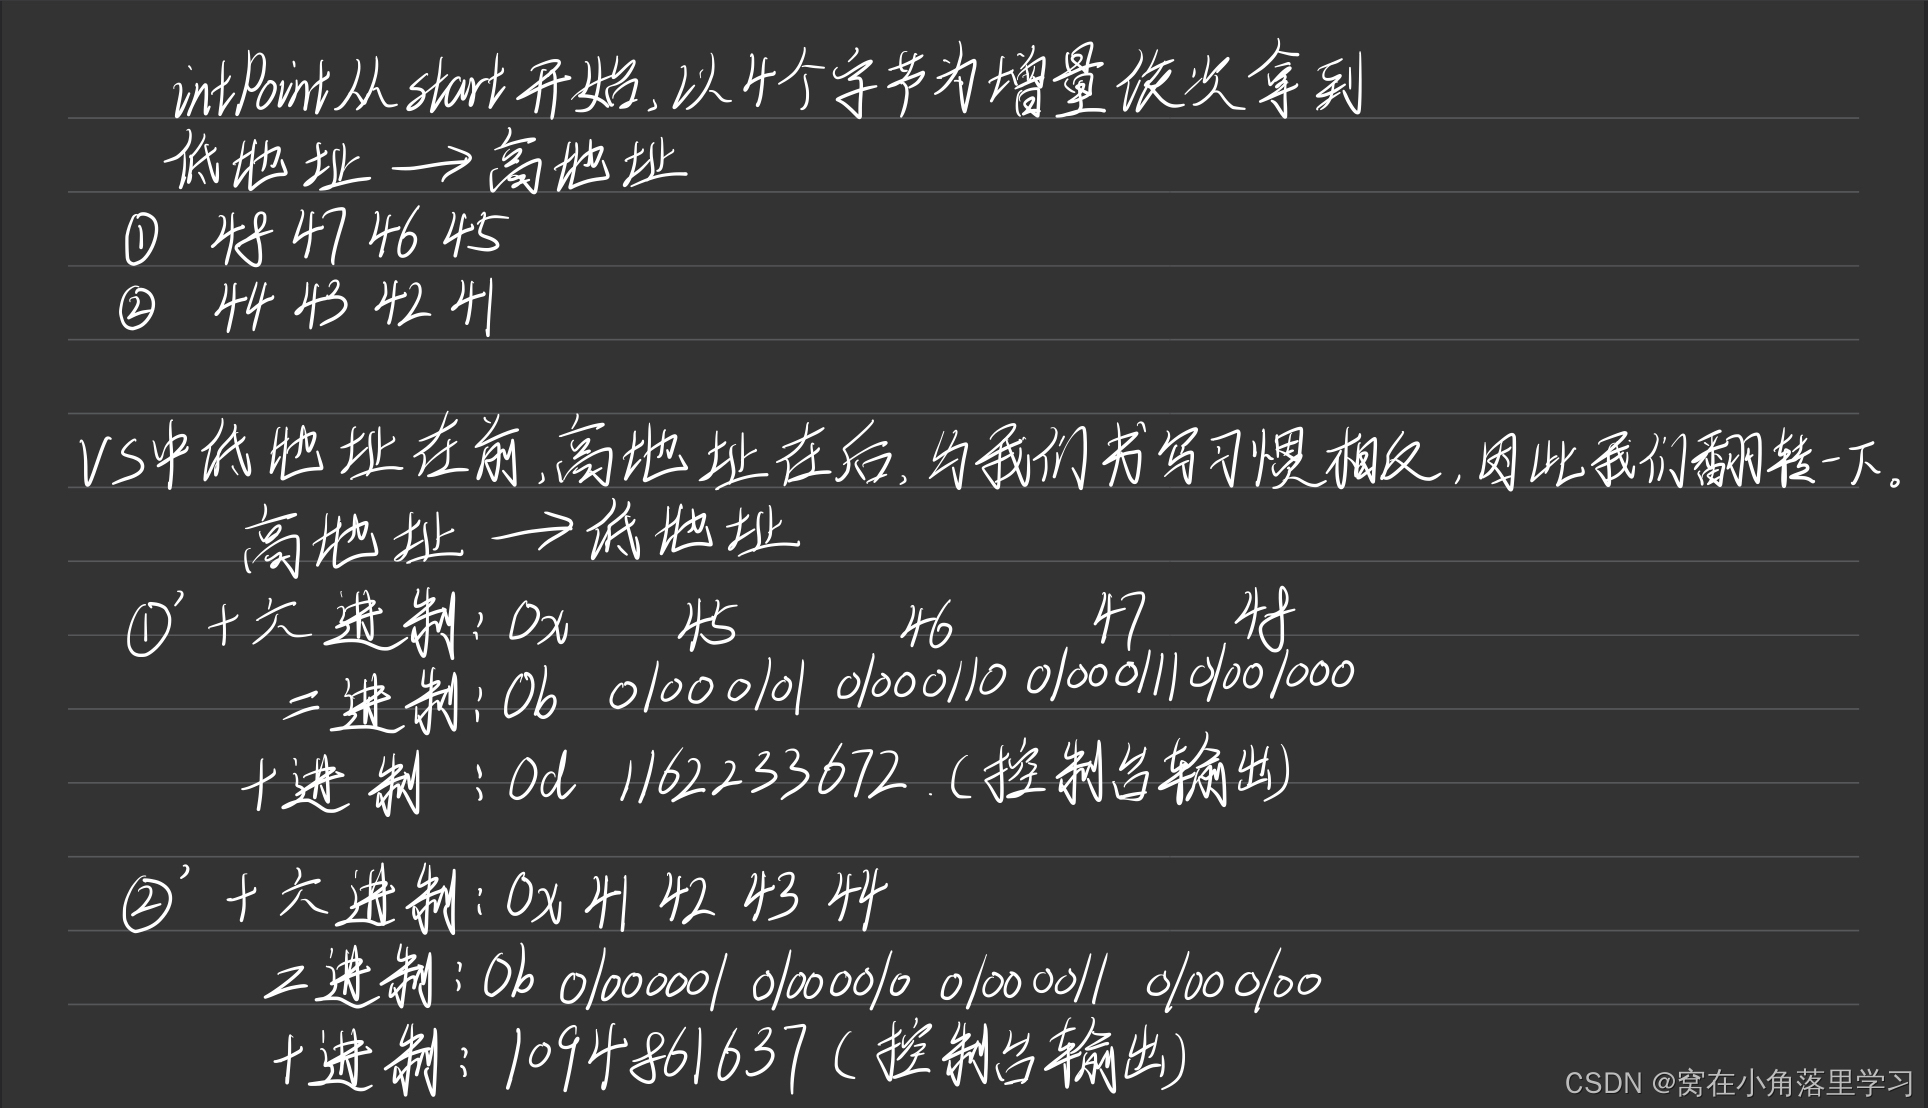 intPoint从start开始,以4个字节为增量依次拿到
低地址 → 高地址
① 48 47 46 45
② 44 43 42 41
VS中低地址在前,高地址在后,与我们书写习惯相反,因此我们翻转一下。
高地址 → 低地址
①' 十六进制: 0x 45 46 47 48
二进制: 0b 01000101 01000110 01000111 01001000
十进制 : 0d 1162233672.(控制台输出)
②' 十六进制: 0x 41 42 43 44
二进制: 0b 01000001 01000010 01000011 01000100
十进制: 1094861637(控制台输出)
CSDN @窝在小角落里学习